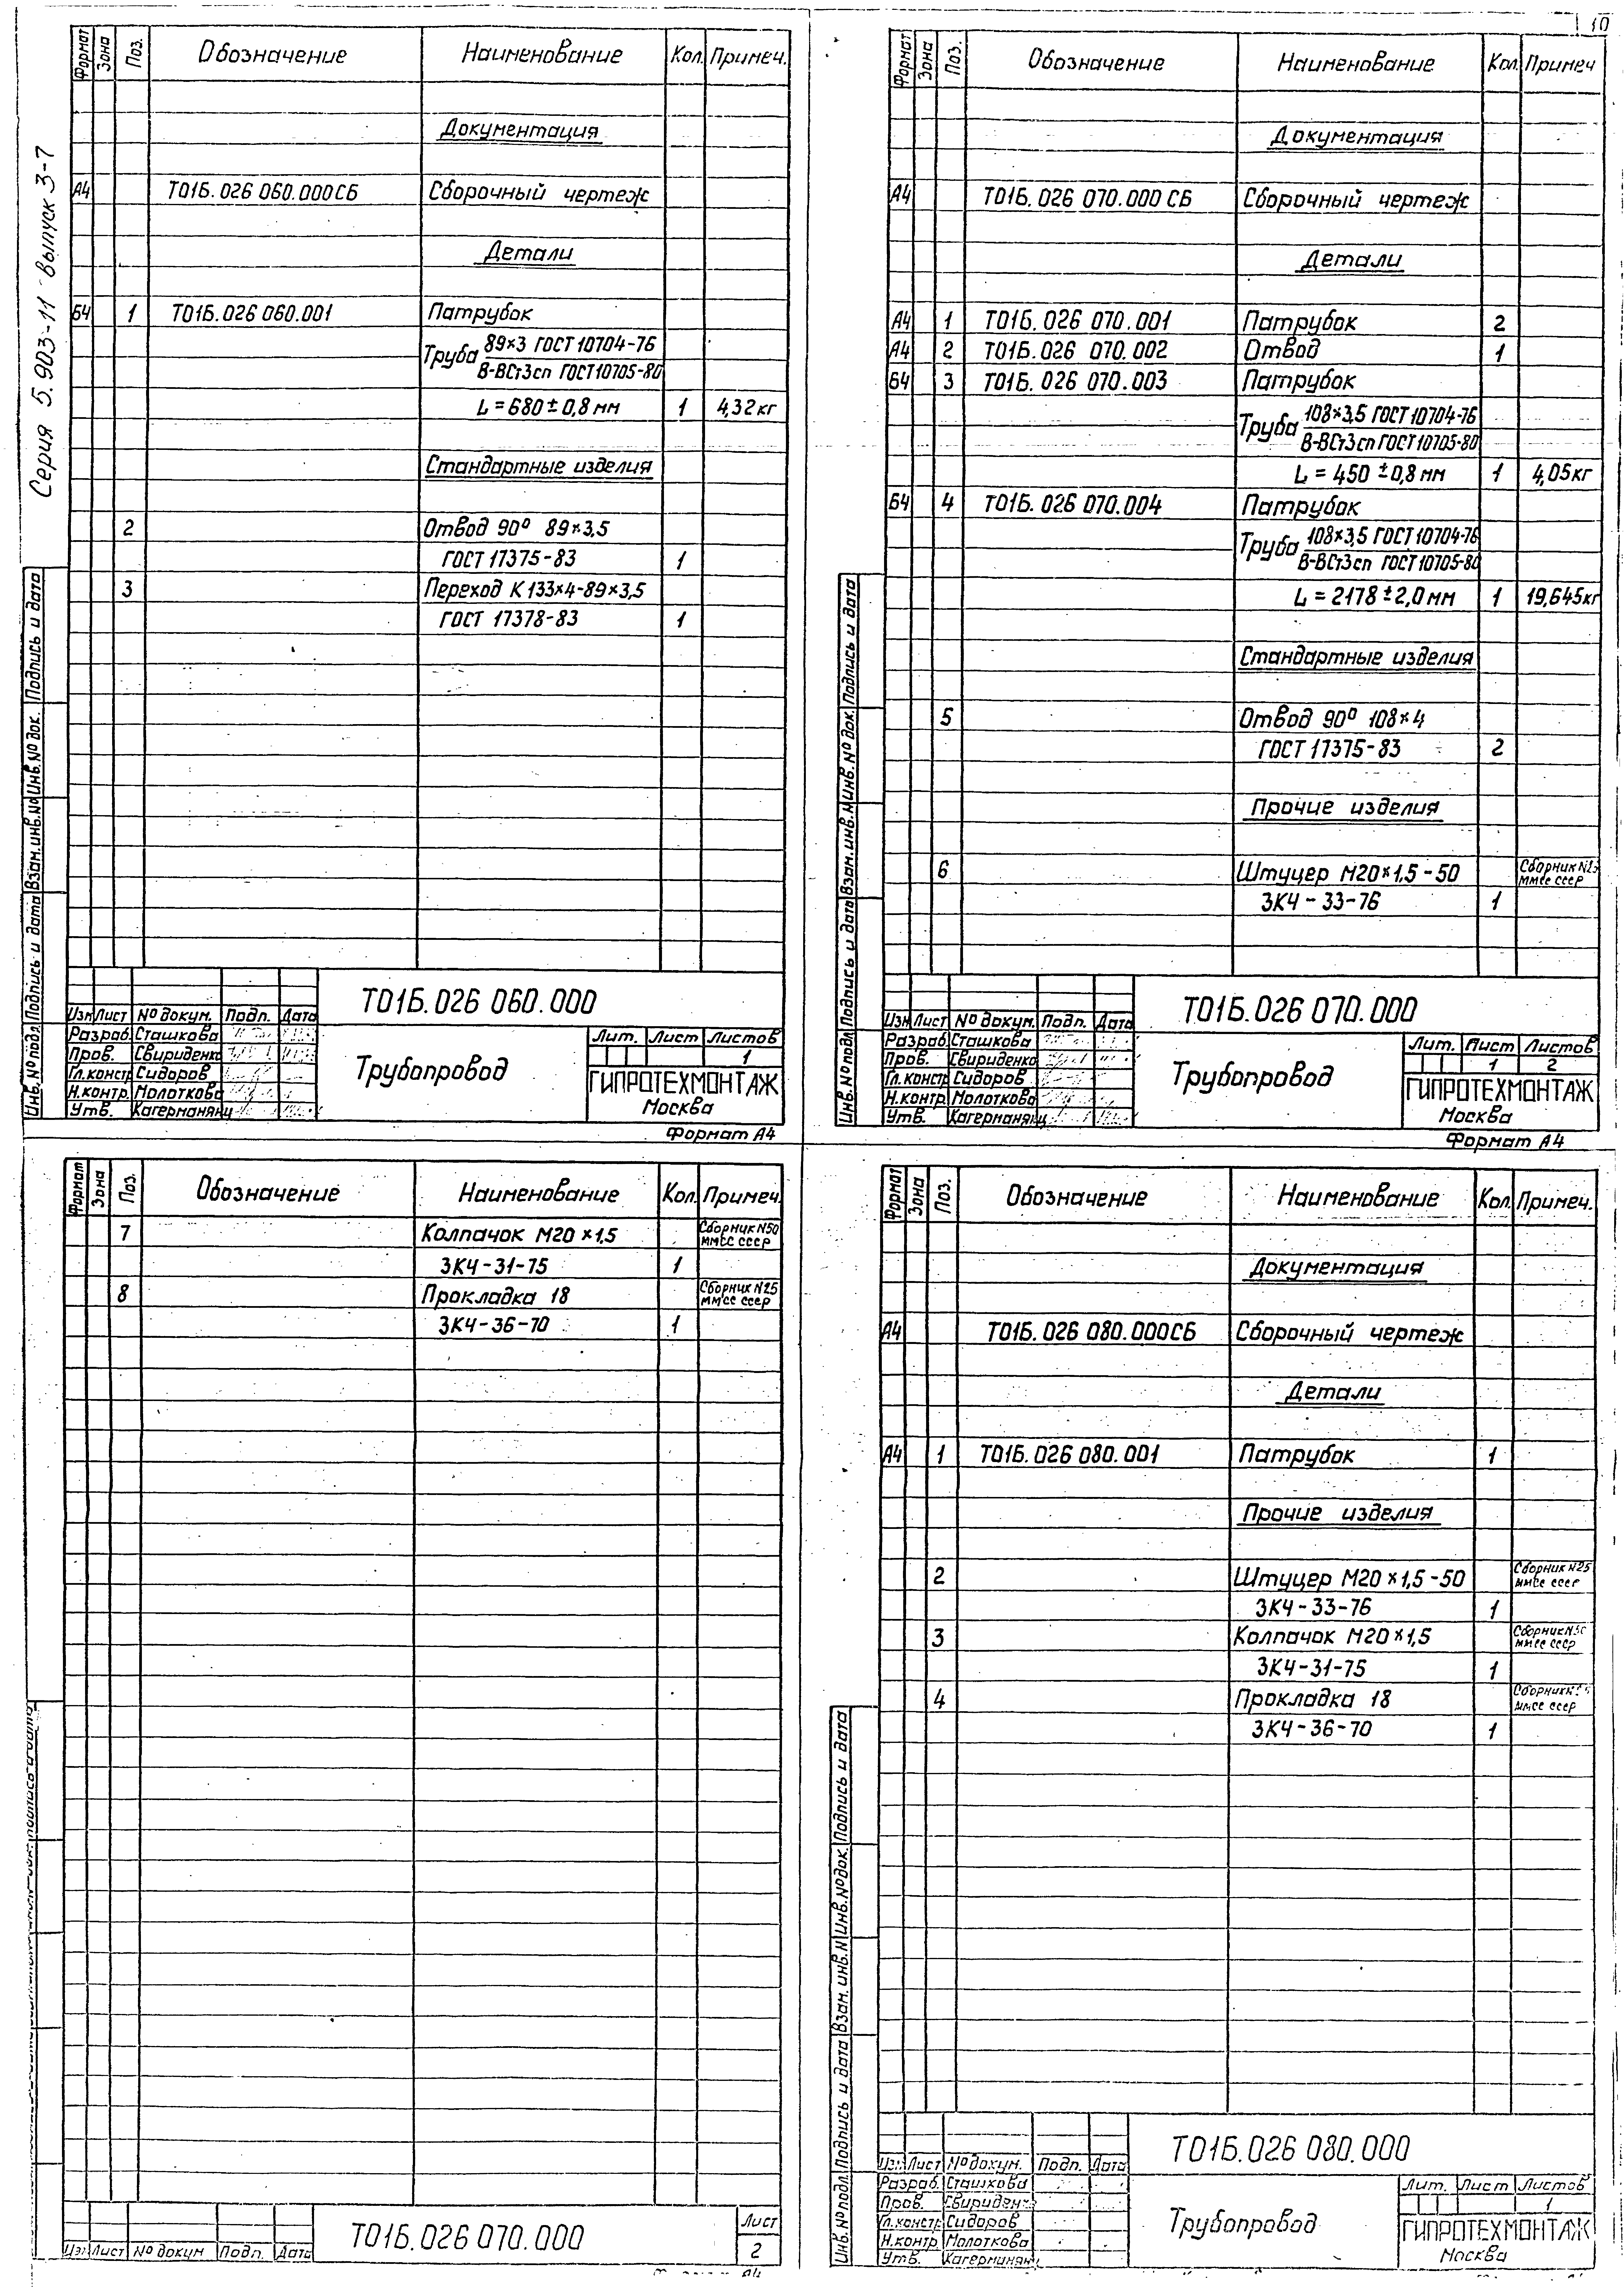 10
Серия 5.903-11 выпуск 3-7
Формат Зона Поз. Обозначение Наименование Кол. Примеч.
Документация
А4 Т01Б.026 060.000СБ Сборочный чертеж
Детали
Б4 1 Т01Б.026 060.001 Патрубок
Труба 89×3 ГОСТ 10704-76
В-ВСт3сп ГОСТ 10705-80
L = 680 ± 0,8 мм 1 4,32 кг
Стандартные изделия
2 Отвод 90° 89×3,5
ГОСТ 17375-83 1
3 Переход К 133×4-89×3,5
ГОСТ 17378-83 1
Инв.№ подл. Подпись и дата Взам.инв.№ Инв.№ док. Подпись и дата
Т01Б.026 060.000
Изм Лист № докум. Подп. Дата
Разраб. Сташкова
Пров. Свириденко
Гл.констр Сидоров
Н.контр. Молоткова
Утв. Кагерманянц
Трубопровод
Лит. Лист Листов
1
ГИПРОТЕХМОНТАЖ
Москва
Формат А4
Формат Зона Поз. Обозначение Наименование Кол. Примеч
Документация
А4 Т01Б.026 070.000 СБ Сборочный чертеж
Детали
А4 1 Т01Б.026 070.001 Патрубок 2
А4 2 Т01Б.026 070.002 Отвод 1
Б4 3 Т01Б.026 070.003 Патрубок
Труба 108×3,5 ГОСТ 10704-76
В-ВСт3сп ГОСТ 10705-80
L = 450 ±0,8 мм 1 4,05 кг
Б4 4 Т01Б.026 070.004 Патрубок
Труба 108×3,5 ГОСТ 10704-76
В-ВСт3сп ГОСТ 10705-80
L = 2178 ±2,0 мм 1 19,645кг
Стандартные изделия
5 Отвод 90° 108×4
ГОСТ 17375-83 2
Прочие изделия
6 Штуцер М20×1,5-50 Сборник №25
ММСС СССР
ЗКЧ-33-76 1
Инв.№ подл. Подпись и дата Взам.инв.№ Инв.№ док. Подпись и дата
Т01Б.026 070.000
Изм Лист № докум. Подп. Дата
Разраб. Сташкова
Пров. Свириденко
Гл.констр Сидоров
Н.контр. Молоткова
Утв. Кагерманянц
Трубопровод
Лит. Лист Листов
1 2
ГИПРОТЕХМОНТАЖ
Москва
Формат А4
Формат Зона Поз. Обозначение Наименование Кол. Примеч.
7 Колпачок М20×1,5 Сборник №50
ММСС СССР
ЗКЧ-31-75 1
8 Прокладка 18 Сборник №25
ММСС СССР
ЗКЧ-36-70 1
Т01Б.026 070.000
Изм Лист № докум Подп. Дата
Лист
2
А4
Формат Зона Поз. Обозначение Наименование Кол. Примеч.
Документация
А4 Т01Б.026 080.000СБ Сборочный чертеж
Детали
А4 1 Т01Б.026 080.001 Патрубок 1
Прочие изделия
2 Штуцер М20×1,5-50 Сборник №25
ММСС СССР
ЗКЧ-33-76 1
3 Колпачок М20×1,5 Сборник
ММСС СССР
ЗКЧ-31-75 1
4 Прокладка 18 Сборник
ММСС СССР
ЗКЧ-36-70 1
Инв.№ подл. Подпись и дата Взам. инв.№ Инв.№ док. Подпись и дата
Т01Б.026 080.000
Изм Лист № докум. Подп. Дата
Разраб. Сташкова
Пров. Свириденко
Гл.констр Сидоров
Н.контр. Молоткова
Утв. Кагерманянц
Трубопровод
Лит. Лист Листов
1
ГИПРОТЕХМОНТАЖ
Москва